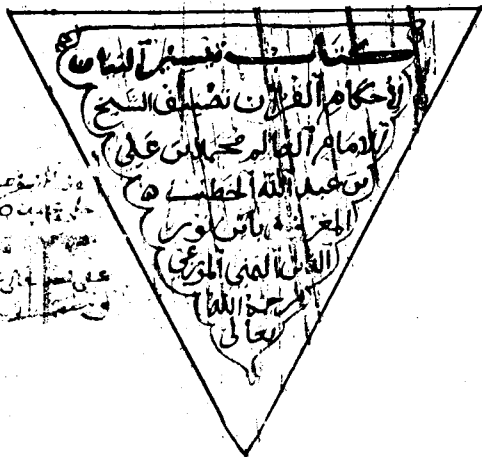 كتاب تيسير البيان
لأحكام القرآن تصنيف الشيخ
الإمام العالم محمد بن علي
ابن عبد الله الخطيب
المعروف بابن نور
الدين اليمني الموزعي
رحمه الله
تعالى